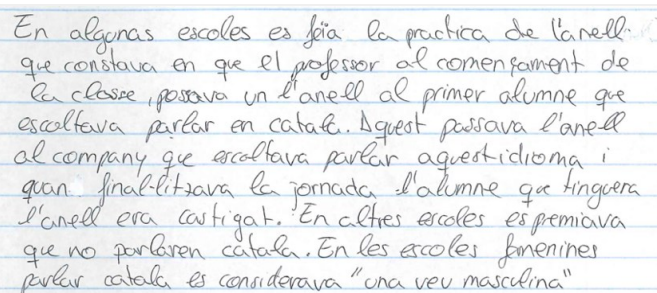 En algunas escoles es feia la practica de l'anell
que constava en que el professor al començament de
la classe, possava un l'anell al primer alumne que
escoltava parlar en català. Aquest passava l'anell
al company que escoltava parlar aquest idioma i
quan final·litzava la jornada l'alumne que tinguera
l'anell era castigat. En altres escoles es premiava
que no parlaren català. En les escoles femenines
parlar català es considerava "una veu masculina"